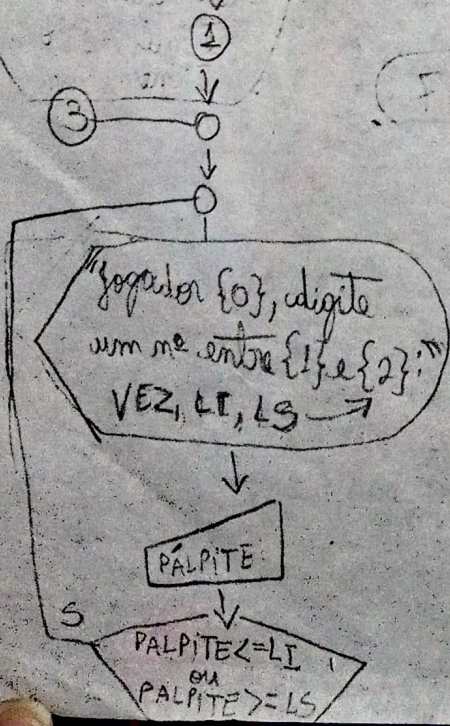 1
3
F
"Jogador {0}, digite
um nº entre {1} e {2}:"
VEZ, LI, LS
PÁLPITE
S
PALPITE<=LI
ou
PALPITE>=LS